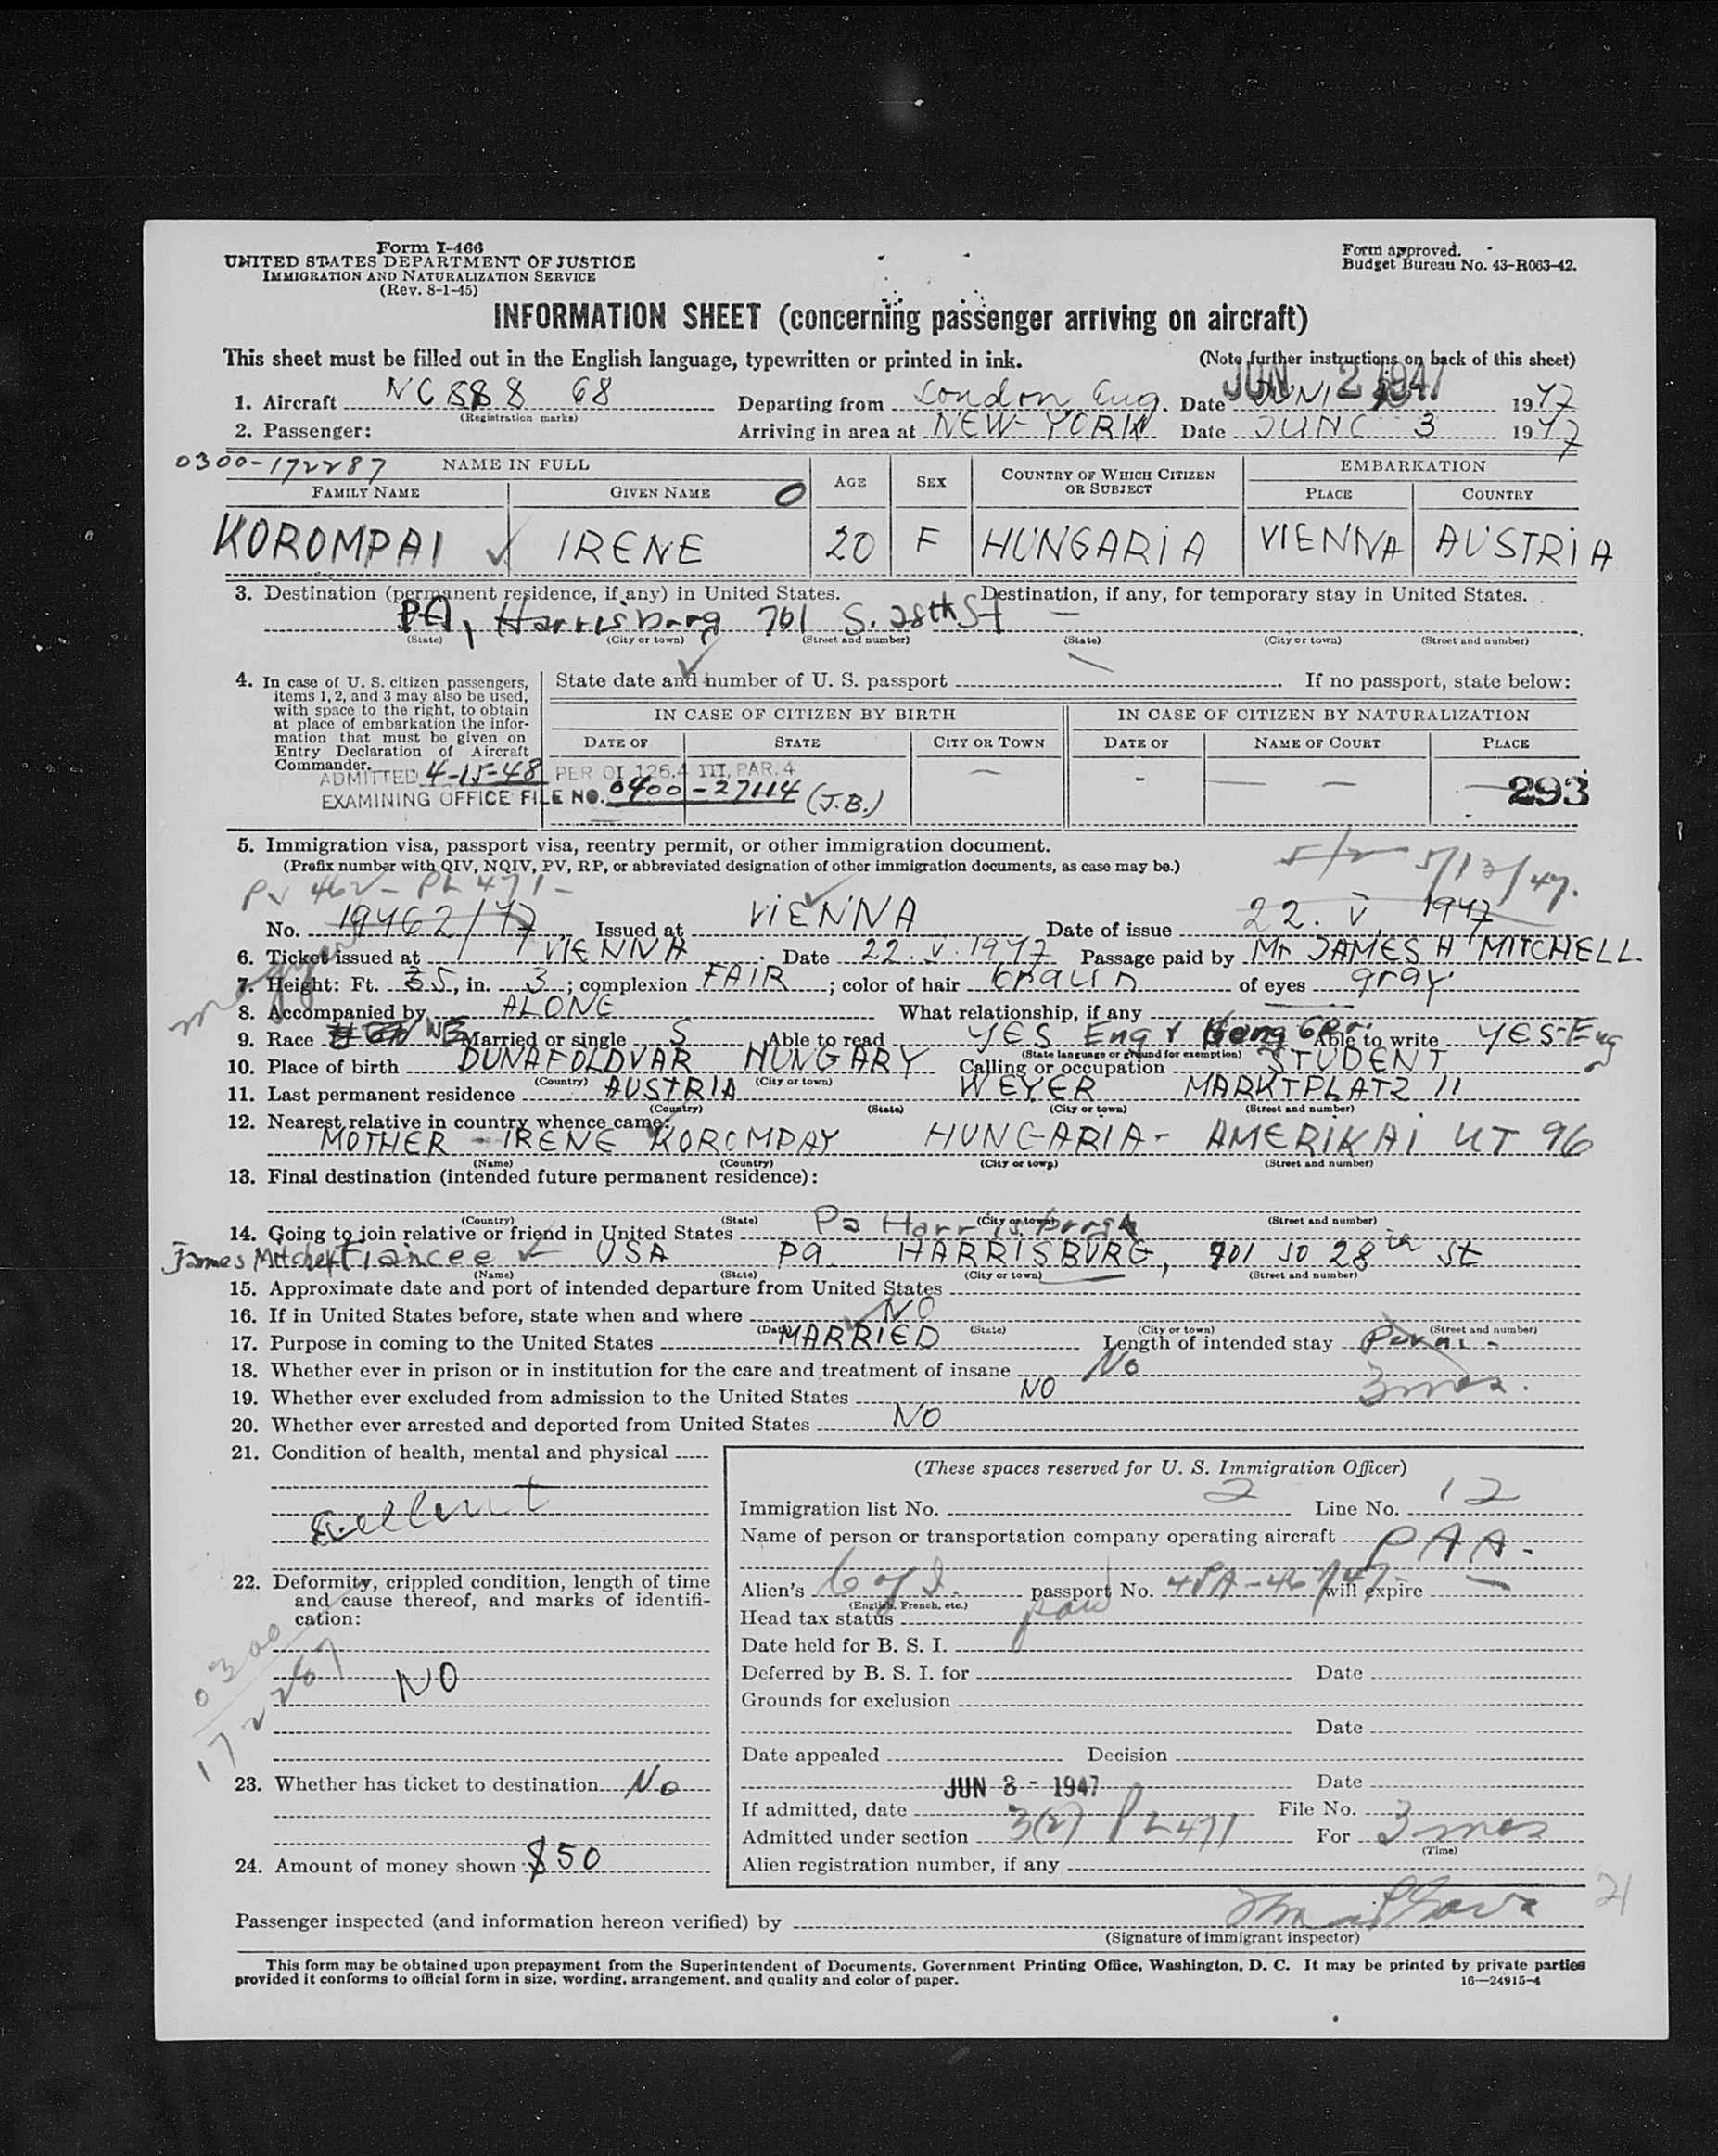 Form I-466
UNITED STATES DEPARTMENT OF JUSTICE
IMMIGRATION AND NATURALIZATION SERVICE
(Rev. 8-1-45)
Form approved.
Budget Bureau No. 43-R063-42.
INFORMATION SHEET (concerning passenger arriving on aircraft)
This sheet must be filled out in the English language, typewritten or printed in ink. (Note further instructions on back of this sheet)
JUN 2 1947
1. Aircraft NC 888 68 Departing from London Eng. Date JUNI 1947
(Registration marks)
2. Passenger: Arriving in area at NEW-YORK Date JUNE 3 1947
0300-172287 NAME IN FULL AGE SEX COUNTRY OF WHICH CITIZEN OR SUBJECT EMBARKATION
FAMILY NAME GIVEN NAME 0 PLACE COUNTRY
KOROMPAI IRENE 20 F HUNGARIA VIENNA AUSTRIA
3. Destination (permanent residence, if any) in United States. Destination, if any, for temporary stay in United States.
PA, Harrisburg 701 S. 28th St —
(State) (City or town) (Street and number) (State) (City or town) (Street and number)
4. In case of U. S. citizen passengers, items 1, 2, and 3 may also be used, with space to the right, to obtain at place of embarkation the information that must be given on Entry Declaration of Aircraft Commander.
State date and number of U. S. passport If no passport, state below:
IN CASE OF CITIZEN BY BIRTH IN CASE OF CITIZEN BY NATURALIZATION
DATE OF STATE CITY OR TOWN DATE OF NAME OF COURT PLACE
ADMITTED 4-15-48 PER OI 126.4 III, PAR. 4
EXAMINING OFFICE FILE NO. 0400-27114 (J.B.)
293
5. Immigration visa, passport visa, reentry permit, or other immigration document.
(Prefix number with QIV, NQIV, PV, RP, or abbreviated designation of other immigration documents, as case may be.)
PV 462 - PL 471 - 5/2 5/13/47.
No. 19462/47 Issued at VIENNA Date of issue 22. V. 1947
6. Ticket issued at VIENNA Date 22. V. 1947 Passage paid by Mr JAMES H MITCHELL.
magyar
7. Height: Ft. 5, in. 3; complexion FAIR; color of hair braun of eyes gray.
8. Accompanied by ALONE What relationship, if any
9. Race Married or single S Able to read YES Eng & Hung Ger. Able to write YES-Eng
(State language or ground for exemption)
10. Place of birth DUNAFOLDVAR HUNGARY Calling or occupation STUDENT
(Country) (City or town)
11. Last permanent residence AUSTRIA WEYER MARKTPLATZ 11
(Country) (State) (City or town) (Street and number)
12. Nearest relative in country whence came:
MOTHER - IRENE KOROMPAY HUNGARIA - AMERIKAI UT 96
(Name) (Country) (City or town) (Street and number)
13. Final destination (intended future permanent residence):
(Country) (State) (City or town) (Street and number)
14. Going to join relative or friend in United States Pa Harrisburgh
James Mitchell Fiancee USA Pa. HARRISBURG, 701 SO 28th St
(Name) (State) (City or town) (Street and number)
15. Approximate date and port of intended departure from United States
16. If in United States before, state when and where NO
(Date) (State) (City or town) (Street and number)
17. Purpose in coming to the United States MARRIED Length of intended stay Perm.
3 mos.
18. Whether ever in prison or in institution for the care and treatment of insane No
19. Whether ever excluded from admission to the United States NO
20. Whether ever arrested and deported from United States NO
21. Condition of health, mental and physical
Exellent
22. Deformity, crippled condition, length of time and cause thereof, and marks of identification:
NO
0300
172287
23. Whether has ticket to destination No
24. Amount of money shown $50
(These spaces reserved for U. S. Immigration Officer)
Immigration list No. 2 Line No. 12
Name of person or transportation company operating aircraft PAA.
Alien's C of I. passport No. will expire —
(English, French, etc.)
Head tax status paid
Date held for B. S. I.
Deferred by B. S. I. for Date
Grounds for exclusion
Date
Date appealed Decision
JUN 3 - 1947 Date
If admitted, date File No.
Admitted under section 3(2) PL 471 For 3 mos
(Time)
Alien registration number, if any
Passenger inspected (and information hereon verified) by
(Signature of immigrant inspector)
21
This form may be obtained upon prepayment from the Superintendent of Documents, Government Printing Office, Washington, D. C. It may be printed by private parties
provided it conforms to official form in size, wording, arrangement, and quality and color of paper. 16—24915-4